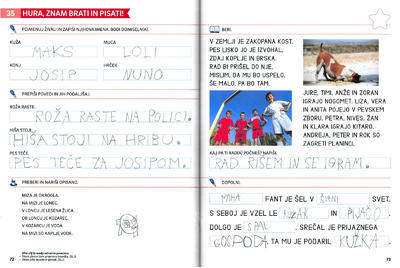 35 HURA, ZNAM BRATI IN PISATI!
POIMENUJ ŽIVALI IN ZAPIŠI NJIHOVA IMENA. BODI DOMISELN/A.
KUŽA
MUCA
MAKS
LOLI
KONJ
KROKAR
JOSIP
NUNO
PREPIŠI POVEDI IN JIH PODALJŠAJ.
ROŽA RASTE.
ROŽA RASTE NA POLICI.
HIŠA STOJI.
HIŠA STOJI NA HRIBU.
PES TEČE.
PES TEČE ZA JOSIPOM.
PREBERI IN NARIŠI OPISANO.
MIZA JE OKROGLA.
NA MIZI JE LONEC.
V LONCU JE LESENA ŽLICA.
OB LONCU JE KOZAREC.
V KOZARCU JE VODA.
NA MIZI SO KAPLJE VODE.
72
BERI.
V ZEMLJI JE ZAKOPANA KOST.
PES LISKO JO JE IZVOHAL.
ZDAJ KOPLJE IN BRSKA.
RAD BI PRIŠEL DO NJE.
MISLIM, DA MU BO USPELO.
ŠE MALO, PA BO TAM.
JURE, TIMI, ANŽE IN ZORAN
IGRAJO NOGOMET. LIZA, VERA
IN ANITA POJEJO V PEVSKEM
ZBORU. PETRA, NIVES, ŽAN
IN KLARA IGRAJO KITARO.
ANDREJA, PETER IN ROK SO
ZAGRETI PLANINCI.
KAJ PA TI RAD/RADA POČNEŠ? NAPIŠI.
RAD RIŠEM IN SE IGRAM.
DOPOLNI.
MIHA FANT JE ŠEL V ŠIRNI SVET.
S SEBOJ JE VZEL LE KUŽAK IN PIJAČO.
DOLGO JE SPAL. SREČAL JE PRIJAZNEGA
GOSPODA. TA MU JE PODARIL KUŽKA.
73